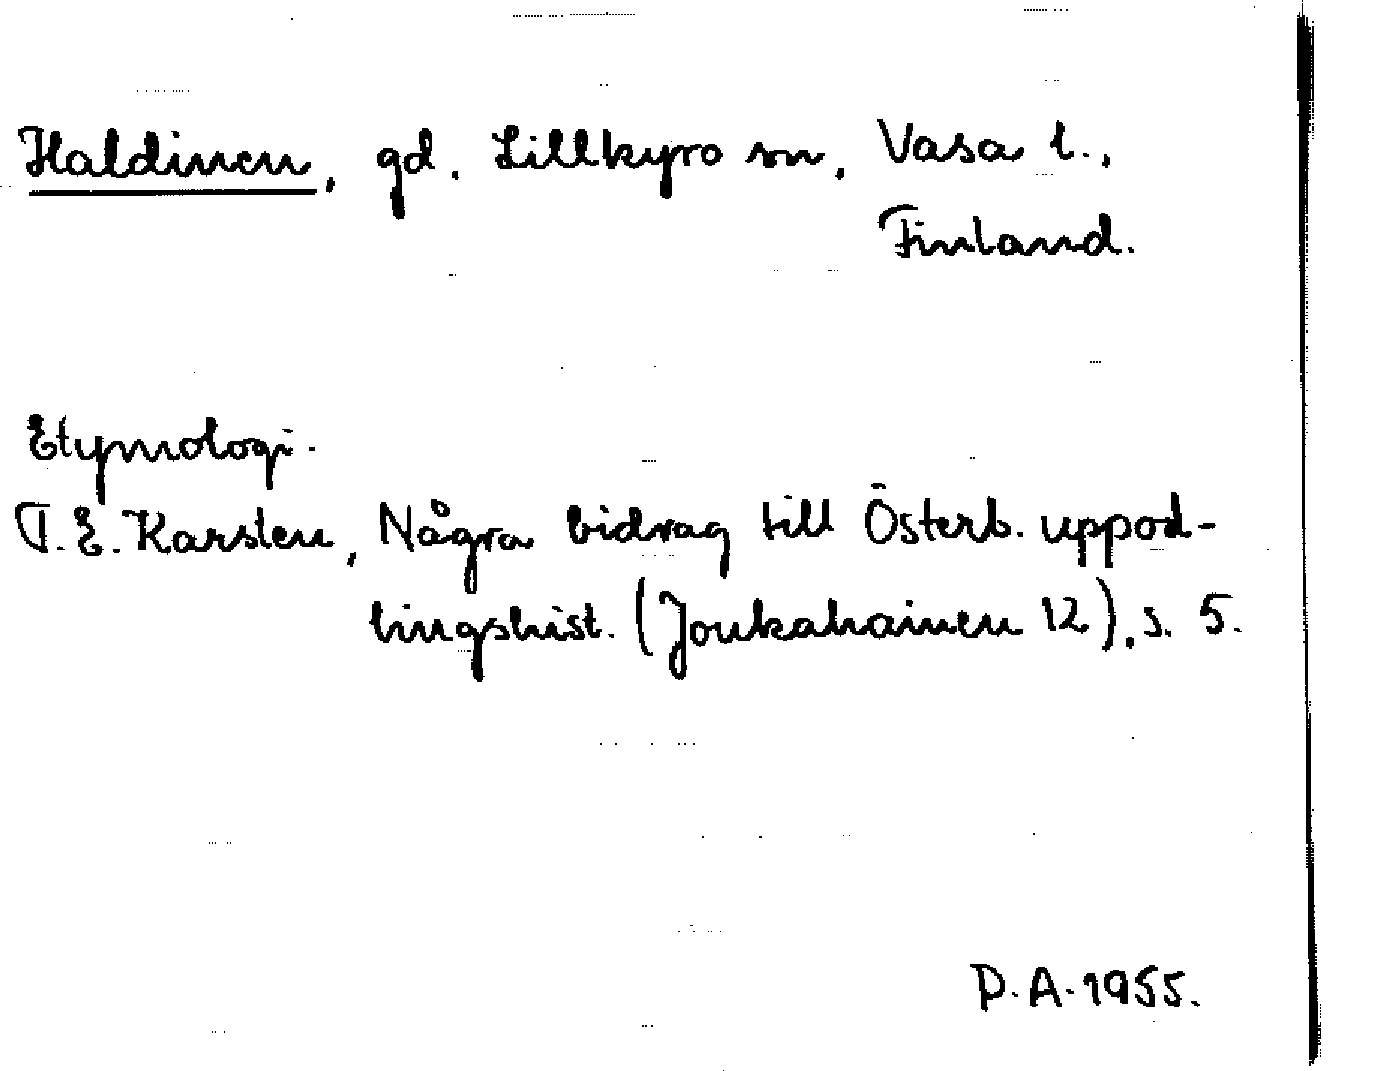 Haldinen, gd. Lillkyro sn, Vasa l.,
Finland.
Etymologi.
T.E. Karsten, Några bidrag till Österb. uppod-
lingshist. (Joukahainen 12), s. 5.
D.A. 1955.